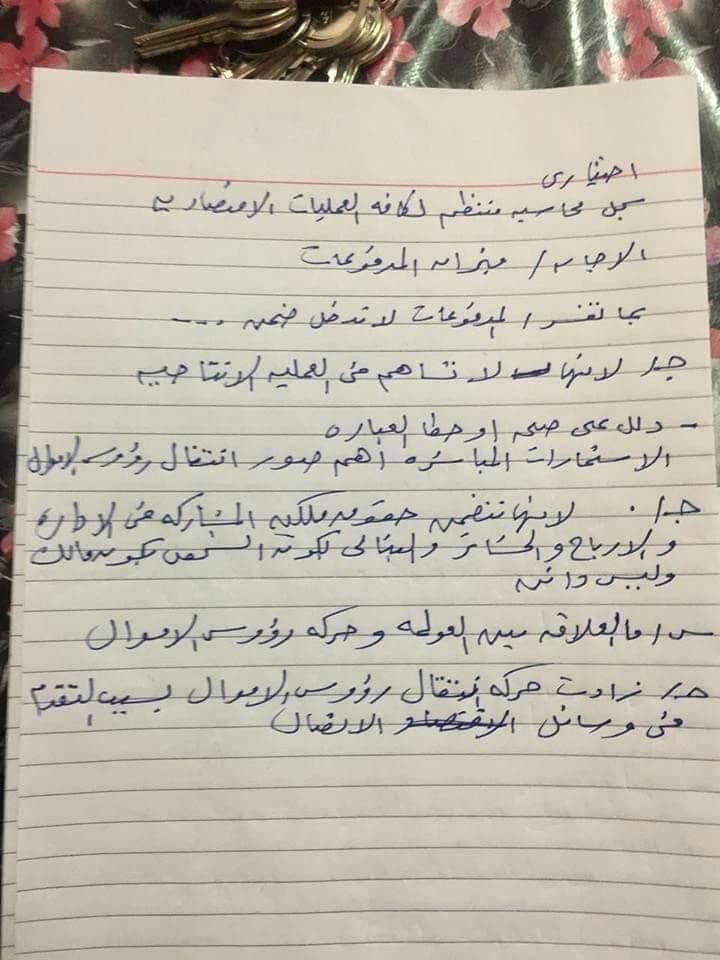 اختيارى
سجل محاسبه منتظم لكافه العمليات الاقتصاديه
الاجابه / ميزان المدفوعات
بما تفسر / المدفوعات لا تدخل ضمن ...
جـ/ لانها لا تساهم فى العمليه الانتاجيه
- دلل على صحه او خطا العباره
الاستثمارات المباشره أهم صور انتقال رؤوس الاموال
جـ/ . لانها تتضمن حقوق ملكيه المشاركه فى الاداره
والارباح والخسائر وبالتالى تكون الشخص يكون مالك
وليس دائن
س / ما العلاقه بين العولمه وحركه رؤوس الاموال
جـ/ زادت حركه انتقال رؤوس الاموال بسبب التقدم
فى وسائل الاتصال